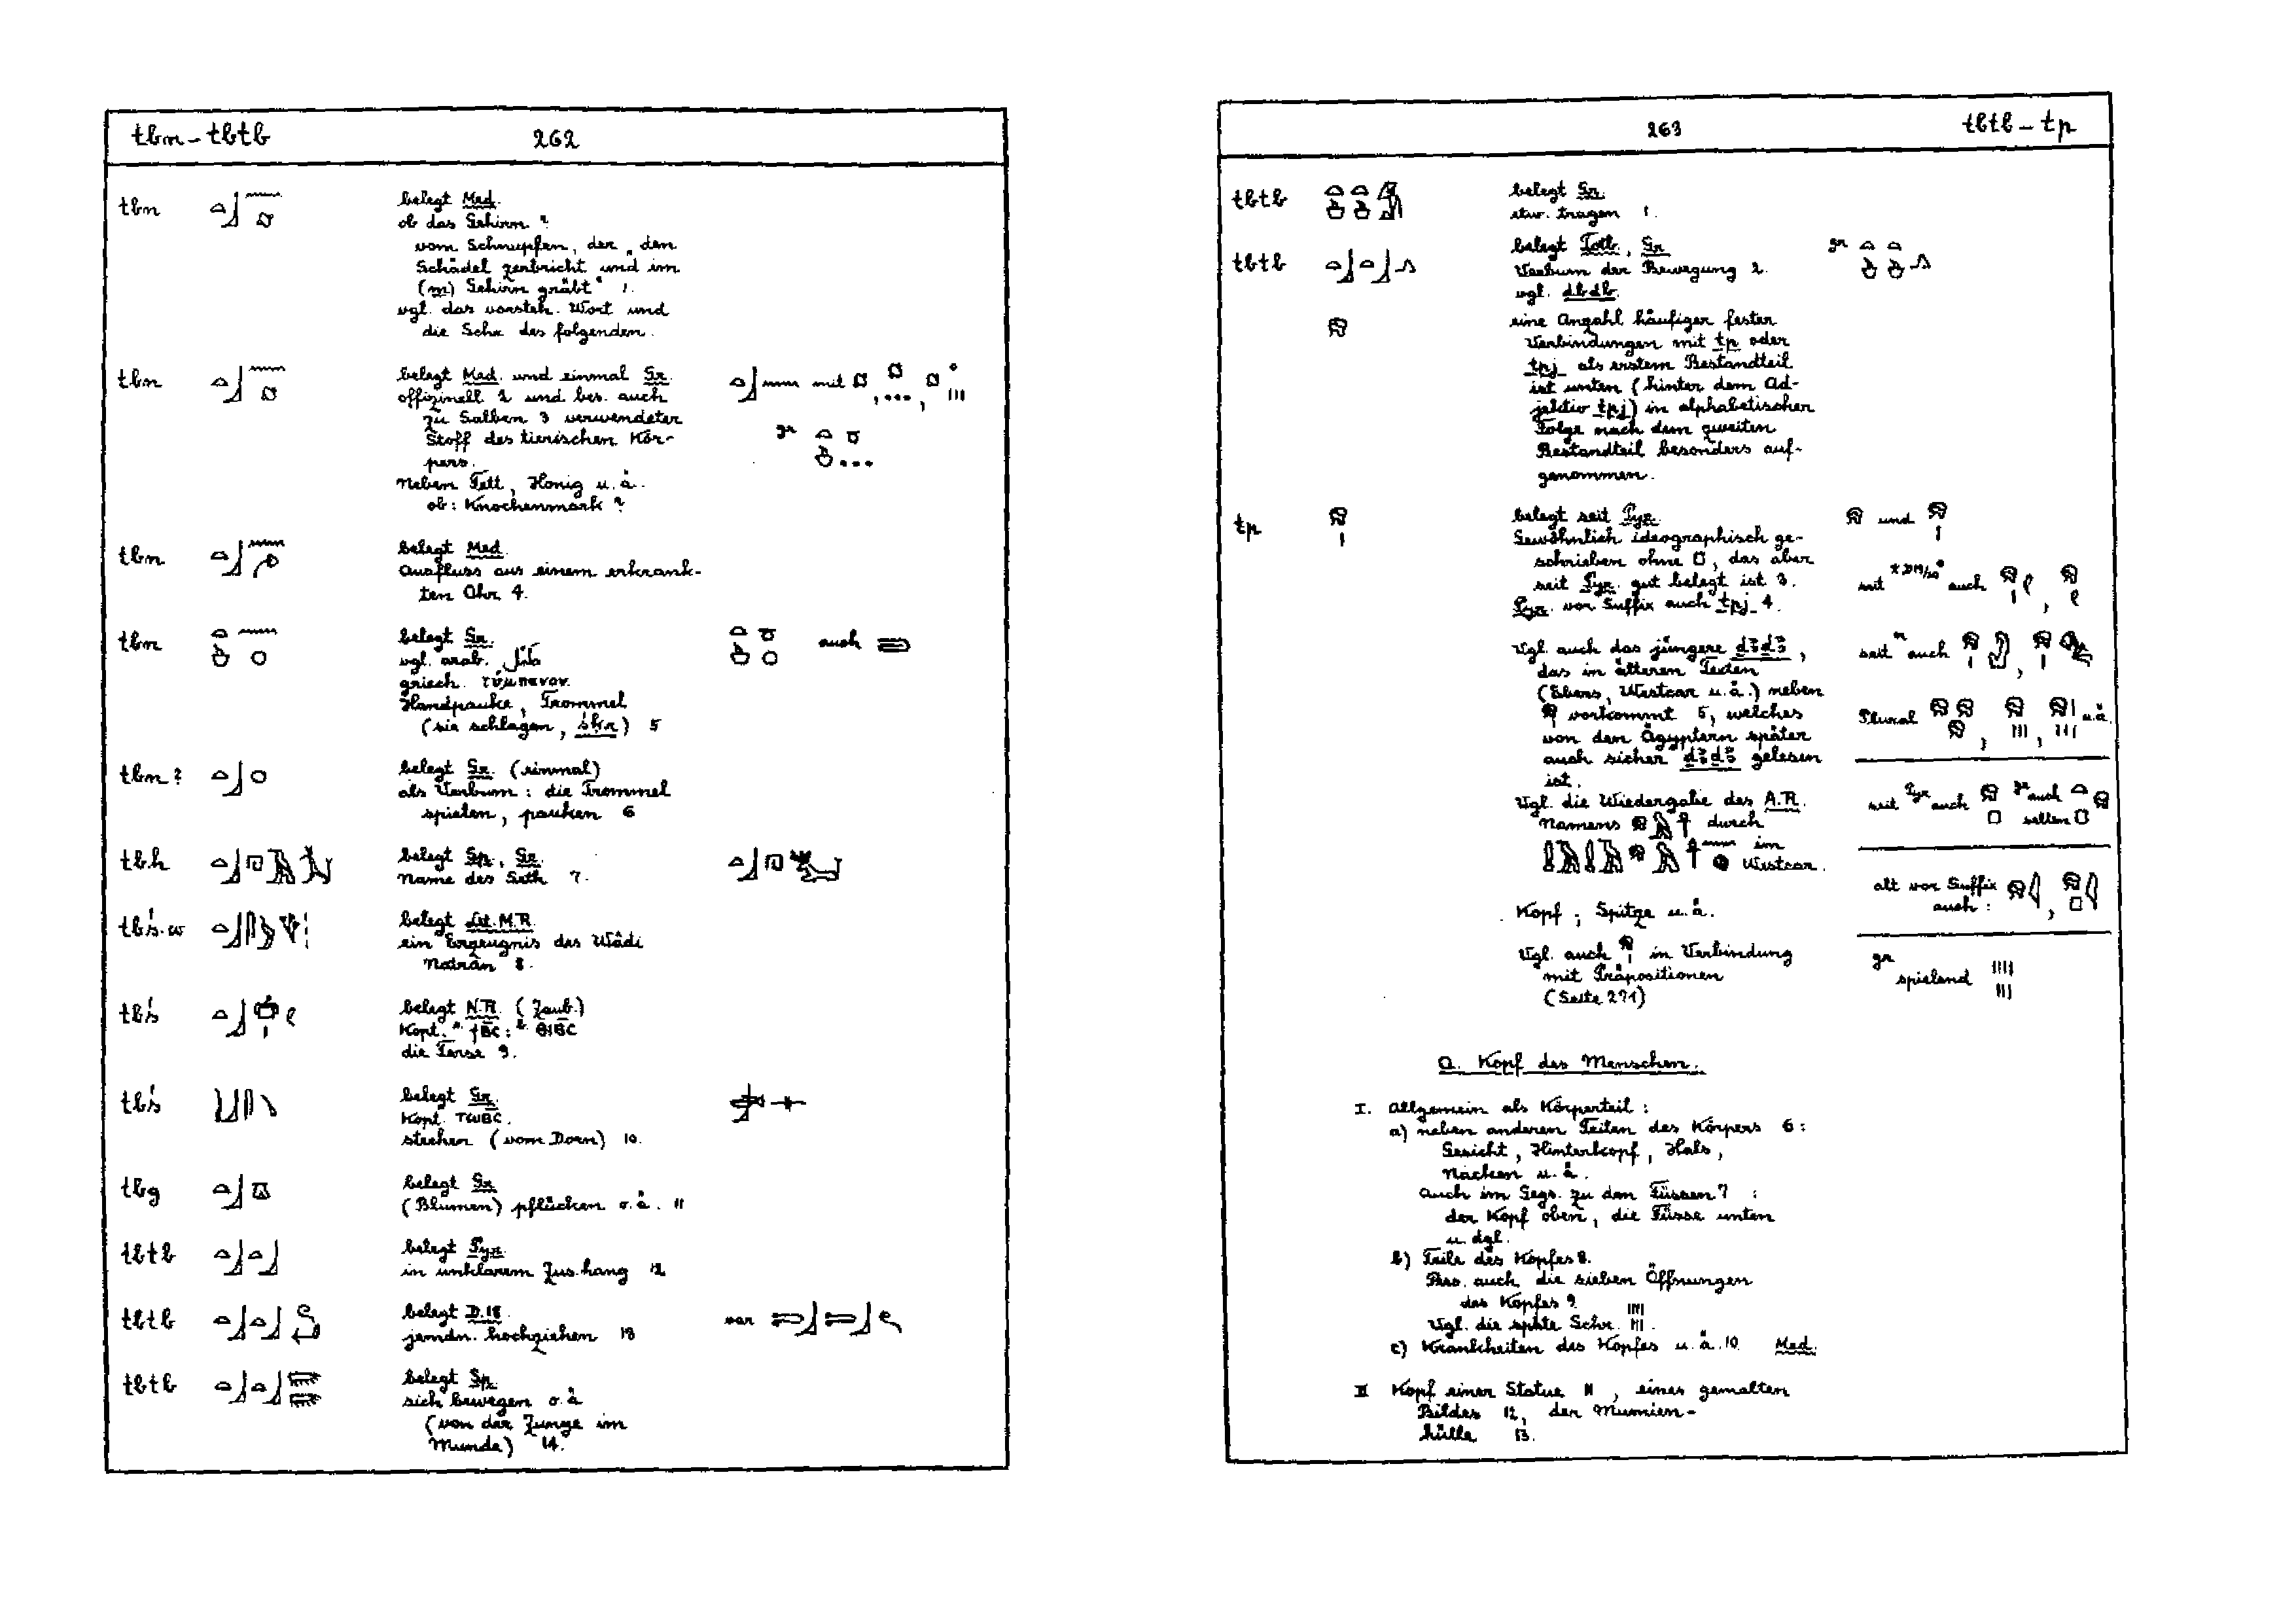 tbn – tbtb 262
tbn
belegt Med.
ob das Gehirn ?
vom Schnupfen, der „den
Schädel zerbricht und im
(m) Gehirn gräbt“ 1.
vgl. das vorsteh. Wort und
die Schr. des folgenden.
tbn
belegt Med. und einmal Gr. mit
offizinell 2 und bes. auch
zu Salben 3 verwendeter
Stoff des tierischen Kör- gr
pers.
Neben Fett, Honig u. ä.
ob: Knochenmark ?
tbn
belegt Med.
Ausfluss aus einem erkrank-
ten Ohr 4.
tbn
belegt Gr. auch
vgl. arab.
griech.
Handpauke, Trommel
(sie schlagen, śḳr) 5
tbn ?
belegt Gr. (einmal)
als Verbum : die Trommel
spielen, pauken 6
tbh
belegt Sp., Gr.
Name des Seth 7.
tbś.w
belegt Lit. M.R.
ein Erzeugnis des Wâdi
Natrûn 8.
tbś
belegt N.R. (Zaub.)
Kopt. ᴬ ϯⲃⲥ : ᴮ ⲑⲓⲃⲥ
die Ferse 9.
tbś
belegt Gr.
Kopt. ⲧⲱⲃⲥ.
stechen (vom Dorn) 10.
tbg
belegt Gr.
(Blumen) pflücken o. ä. 11
tbtb
belegt Pyr.
in unklarem Zus.hang 12
tbtb
belegt D.18. var
jemdn. hochziehen 13
tbtb
belegt Sp.
sich bewegen o. ä.
(von der Zunge im
Munde) 14.
263 tbtb – tp
tbtb
belegt Gr.
etw. tragen 1.
tbtb
belegt Totb., Gr. gr
Verbum der Bewegung 2.
vgl. dbdb.
eine Anzahl häufiger fester
Verbindungen mit tp oder
tpj als erstem Bestandteil
ist unten (hinter dem Ad-
jektiv tpj) in alphabetischer
Folge nach dem zweiten
Bestandteil besonders auf-
genommen.
tp
belegt seit Pyr. und
Gewöhnlich ideographisch ge-
schrieben ohne 𓊪, das aber
seit Pyr. gut belegt ist 3. seit auch
Pyr. vor Suffix auch tpj 4.
Vgl. auch das jüngere ḏꜣḏꜣ, seit auch
das in älteren Texten
(Ebers, Westcar u. ä.) neben
vorkommt 5, welches Plural u.ä.
von den Ägyptern später
auch sicher ḏꜣḏꜣ gelesen
ist.
Vgl. die Wiedergabe des A.R. seit Pyr auch gr auch
Namens durch selten
im
Westcar.
alt vor Suffix
auch :
Kopf ; Spitze u. ä.
Vgl. auch in Verbindung
mit Präpositionen gr spielend
(Seite 271)
a. Kopf des Menschen.
I. Allgemein als Körperteil :
a) neben anderen Teilen des Körpers 6 :
Gesicht, Hinterkopf, Hals,
Nacken u. ä.
Auch im Gegs. zu den Füssen 7 :
der Kopf oben, die Füsse unten
u. dgl.
b) Teile des Kopfes 8.
Bes. auch die sieben Öffnungen
des Kopfes 9.
Vgl. die späte Schr.
c) Krankheiten des Kopfes u. ä. 10. Med.
II Kopf einer Statue 11, eines gemalten
Bildes 12, der Mumien-
hülle 13.